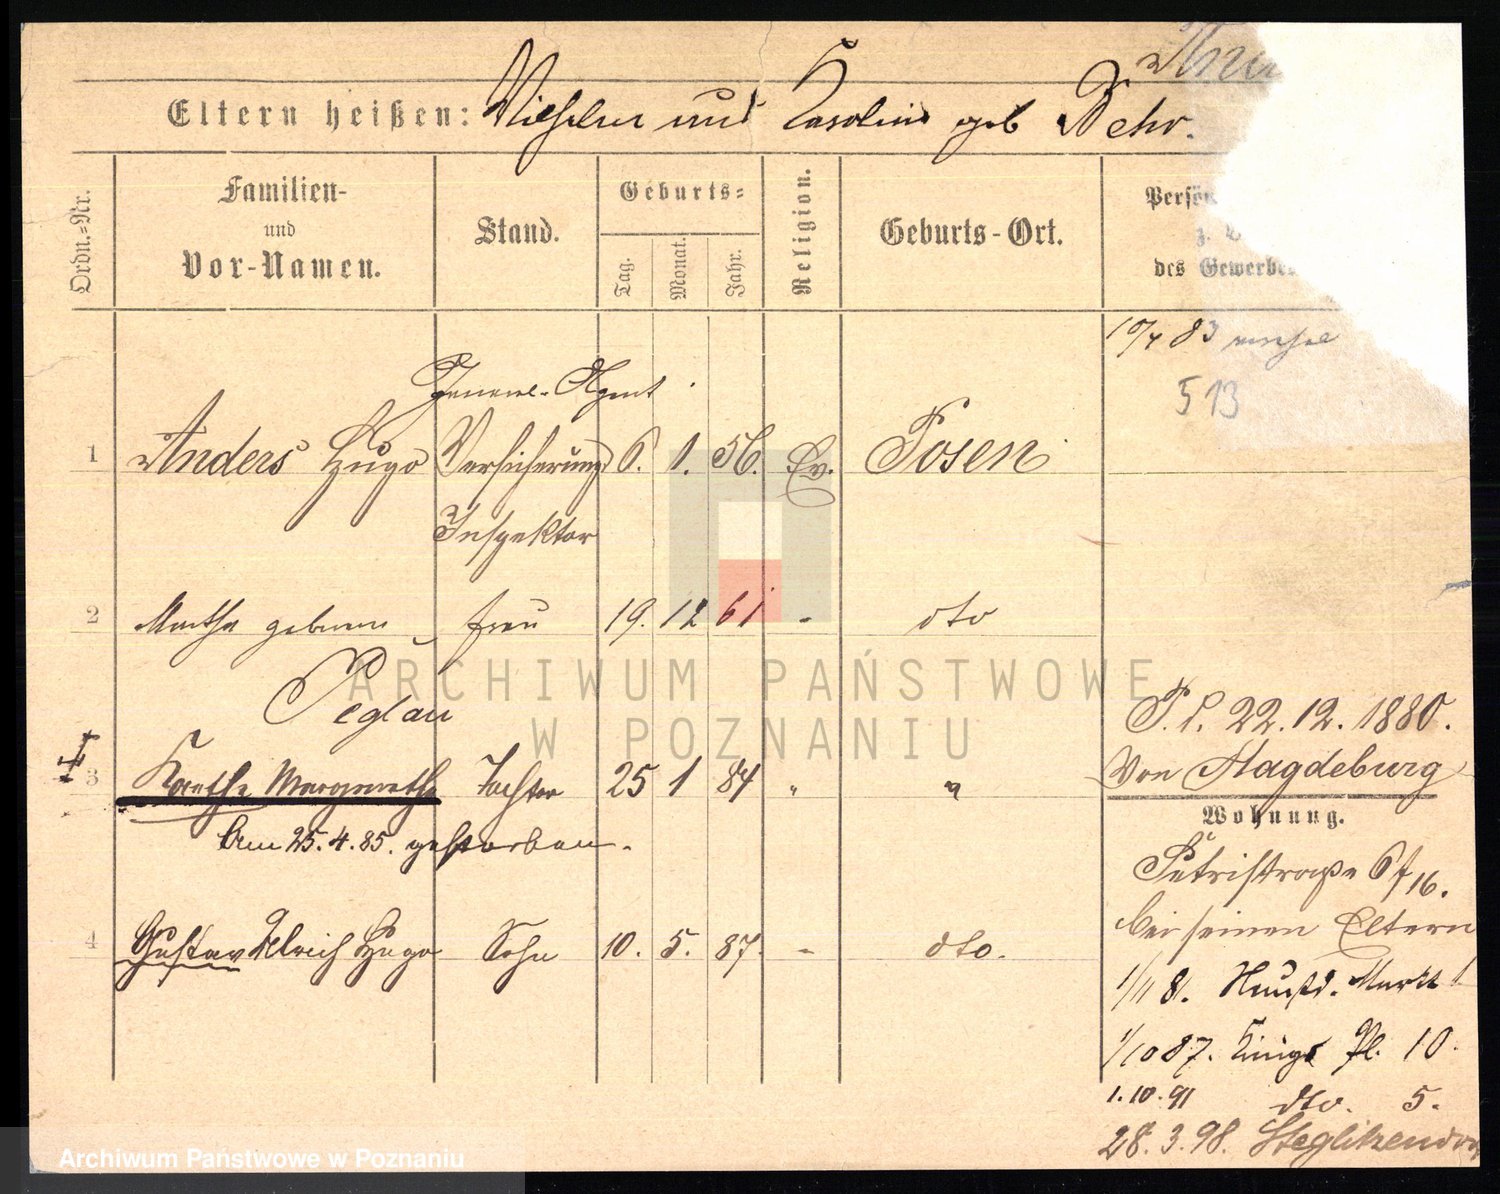 Eltern heißen: Wilhelm und Karoline geb Behr.
Ordn.=Nr.
Familien-
und
Vor-Namen.
Stand.
Geburts=
Tag.
Monat.
Jahr.
Religion.
Geburts-Ort.
des Gewerbe
10/4 83
513
General-Agent
1 Anders Hugo Versicherungs 6. 1. 56. Ev. Posen
Inspektor
2 Martha geborene Frau 19. 12 61 - dto
Peglau
3 Kaethe Margarethe Tochter 25 1 84 " "
Am 25.4.85. gestorben.
4 Gustav Ulrich Hugo Sohn 10. 5. 87. - dto.
P. L. 22.12.1880.
Von Magdeburg
Wohnung.
Petristraße 6/16.
bei seinen Eltern
1/11 8. Neustd. Markt
1/10 87. Königs Pl. 10.
1.10.91 dto. 5.
28.3.98. Steglitzendorf
ARCHIWUM PAŃSTWOWE
W POZNANIU
Archiwum Państwowe w Poznaniu